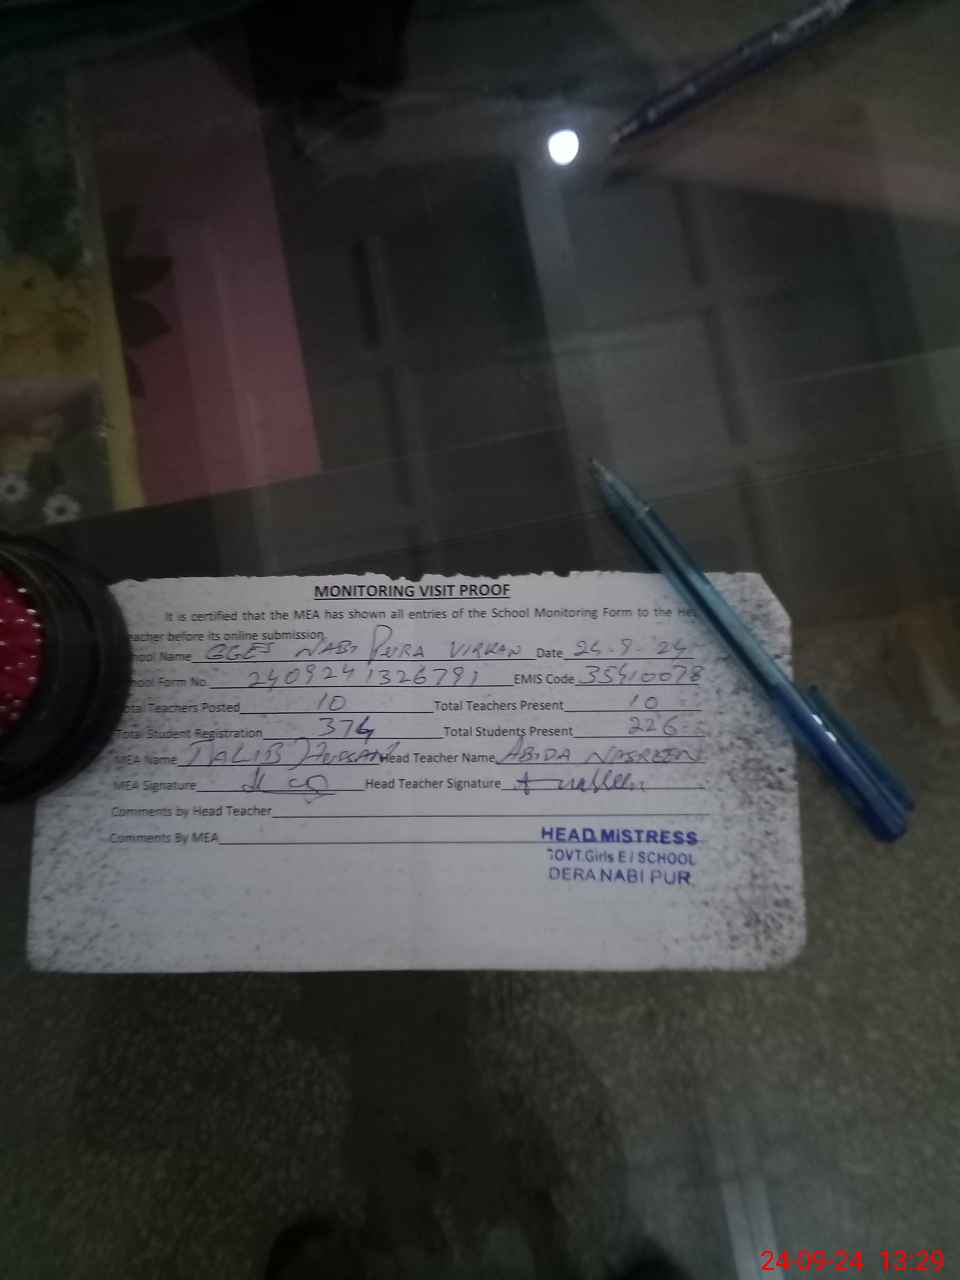 MONITORING VISIT PROOF
It is certified that the MEA has shown all entries of the School Monitoring Form to the He
eacher before its online submission
hool Name GGES NABI PURA VIRKAN Date 24-9-24
hool Form No. 2409241326791 EMIS Code 35410078
otal Teachers Posted 10 Total Teachers Present 10
Total Student Registration 374 Total Students Present 226
MEA Name TALIB HUSSAN Head Teacher Name ABIDA NASREEN
MEA Signature Head Teacher Signature
Comments by Head Teacher
Comments By MEA
HEAD MISTRESS
GOVT.Girls E/ SCHOOL
DERA NABI PUR
24-09-24 13:29